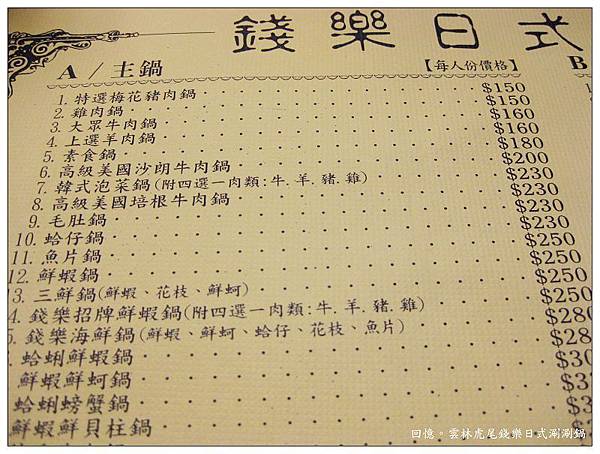 錢樂日式
A / 主鍋 【每人份價格】 B
1. 特選梅花豬肉鍋 $150
2. 雞肉鍋 $150
3. 大眾牛肉鍋 $160
4. 上選羊肉鍋 $160
5. 素食鍋 $180
6. 高級美國沙朗牛肉鍋 $200
7. 韓式泡菜鍋(附四選一肉類:牛.羊.豬.雞) $230
8. 高級美國培根牛肉鍋 $230
9. 毛肚鍋 $230
10. 蛤仔鍋 $230
11. 魚片鍋 $250
12. 鮮蝦鍋 $250
13. 三鮮鍋(鮮蝦、花枝、鮮蚵) $250
4. 錢樂招牌鮮蝦鍋(附四選一肉類:牛.羊.豬.雞) $250
5. 錢樂海鮮鍋(鮮蝦、鮮蚵、蛤仔、花枝、魚片) $280
蛤蜊鮮蝦鍋 $28
鮮蝦鮮蚵鍋 $30
蛤蜊螃蟹鍋 $3
鮮蝦鮮貝柱鍋 $3
回憶。雲林虎尾錢樂日式涮涮鍋